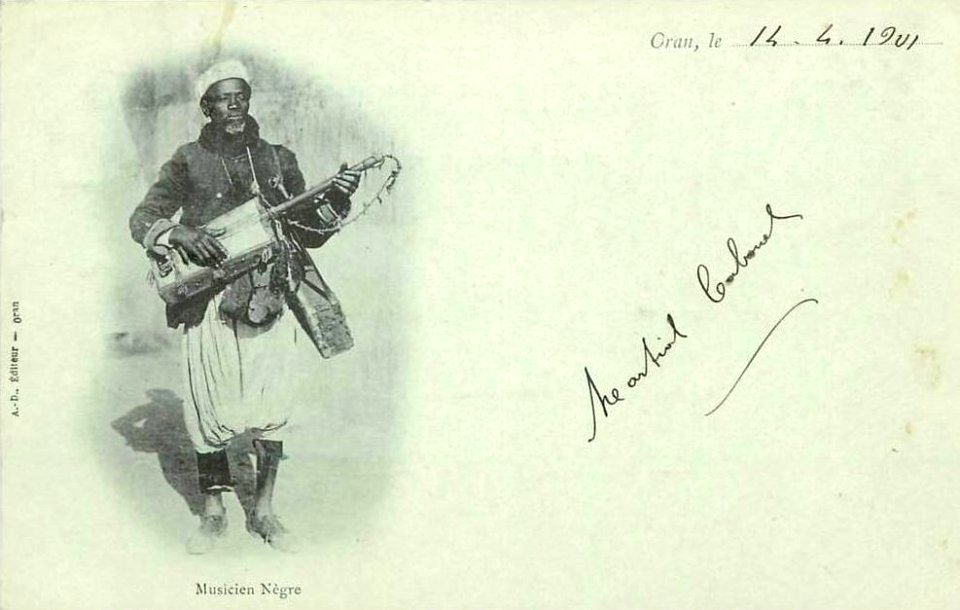 Oran, le 14. 4. 1901
Martial Cabanel
A.-D., Éditeur — Oran
Musicien Nègre